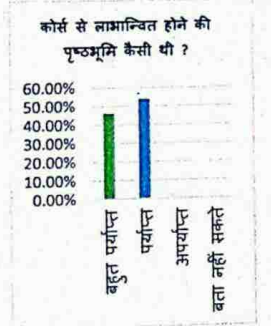 कोर्स से लाभान्वित होने की
पृष्ठभूमि कैसी थी ?
60.00%
50.00%
40.00%
30.00%
20.00%
10.00%
0.00%
बहुत पर्याप्त
पर्याप्त
अपर्याप्त
बता नहीं सकते